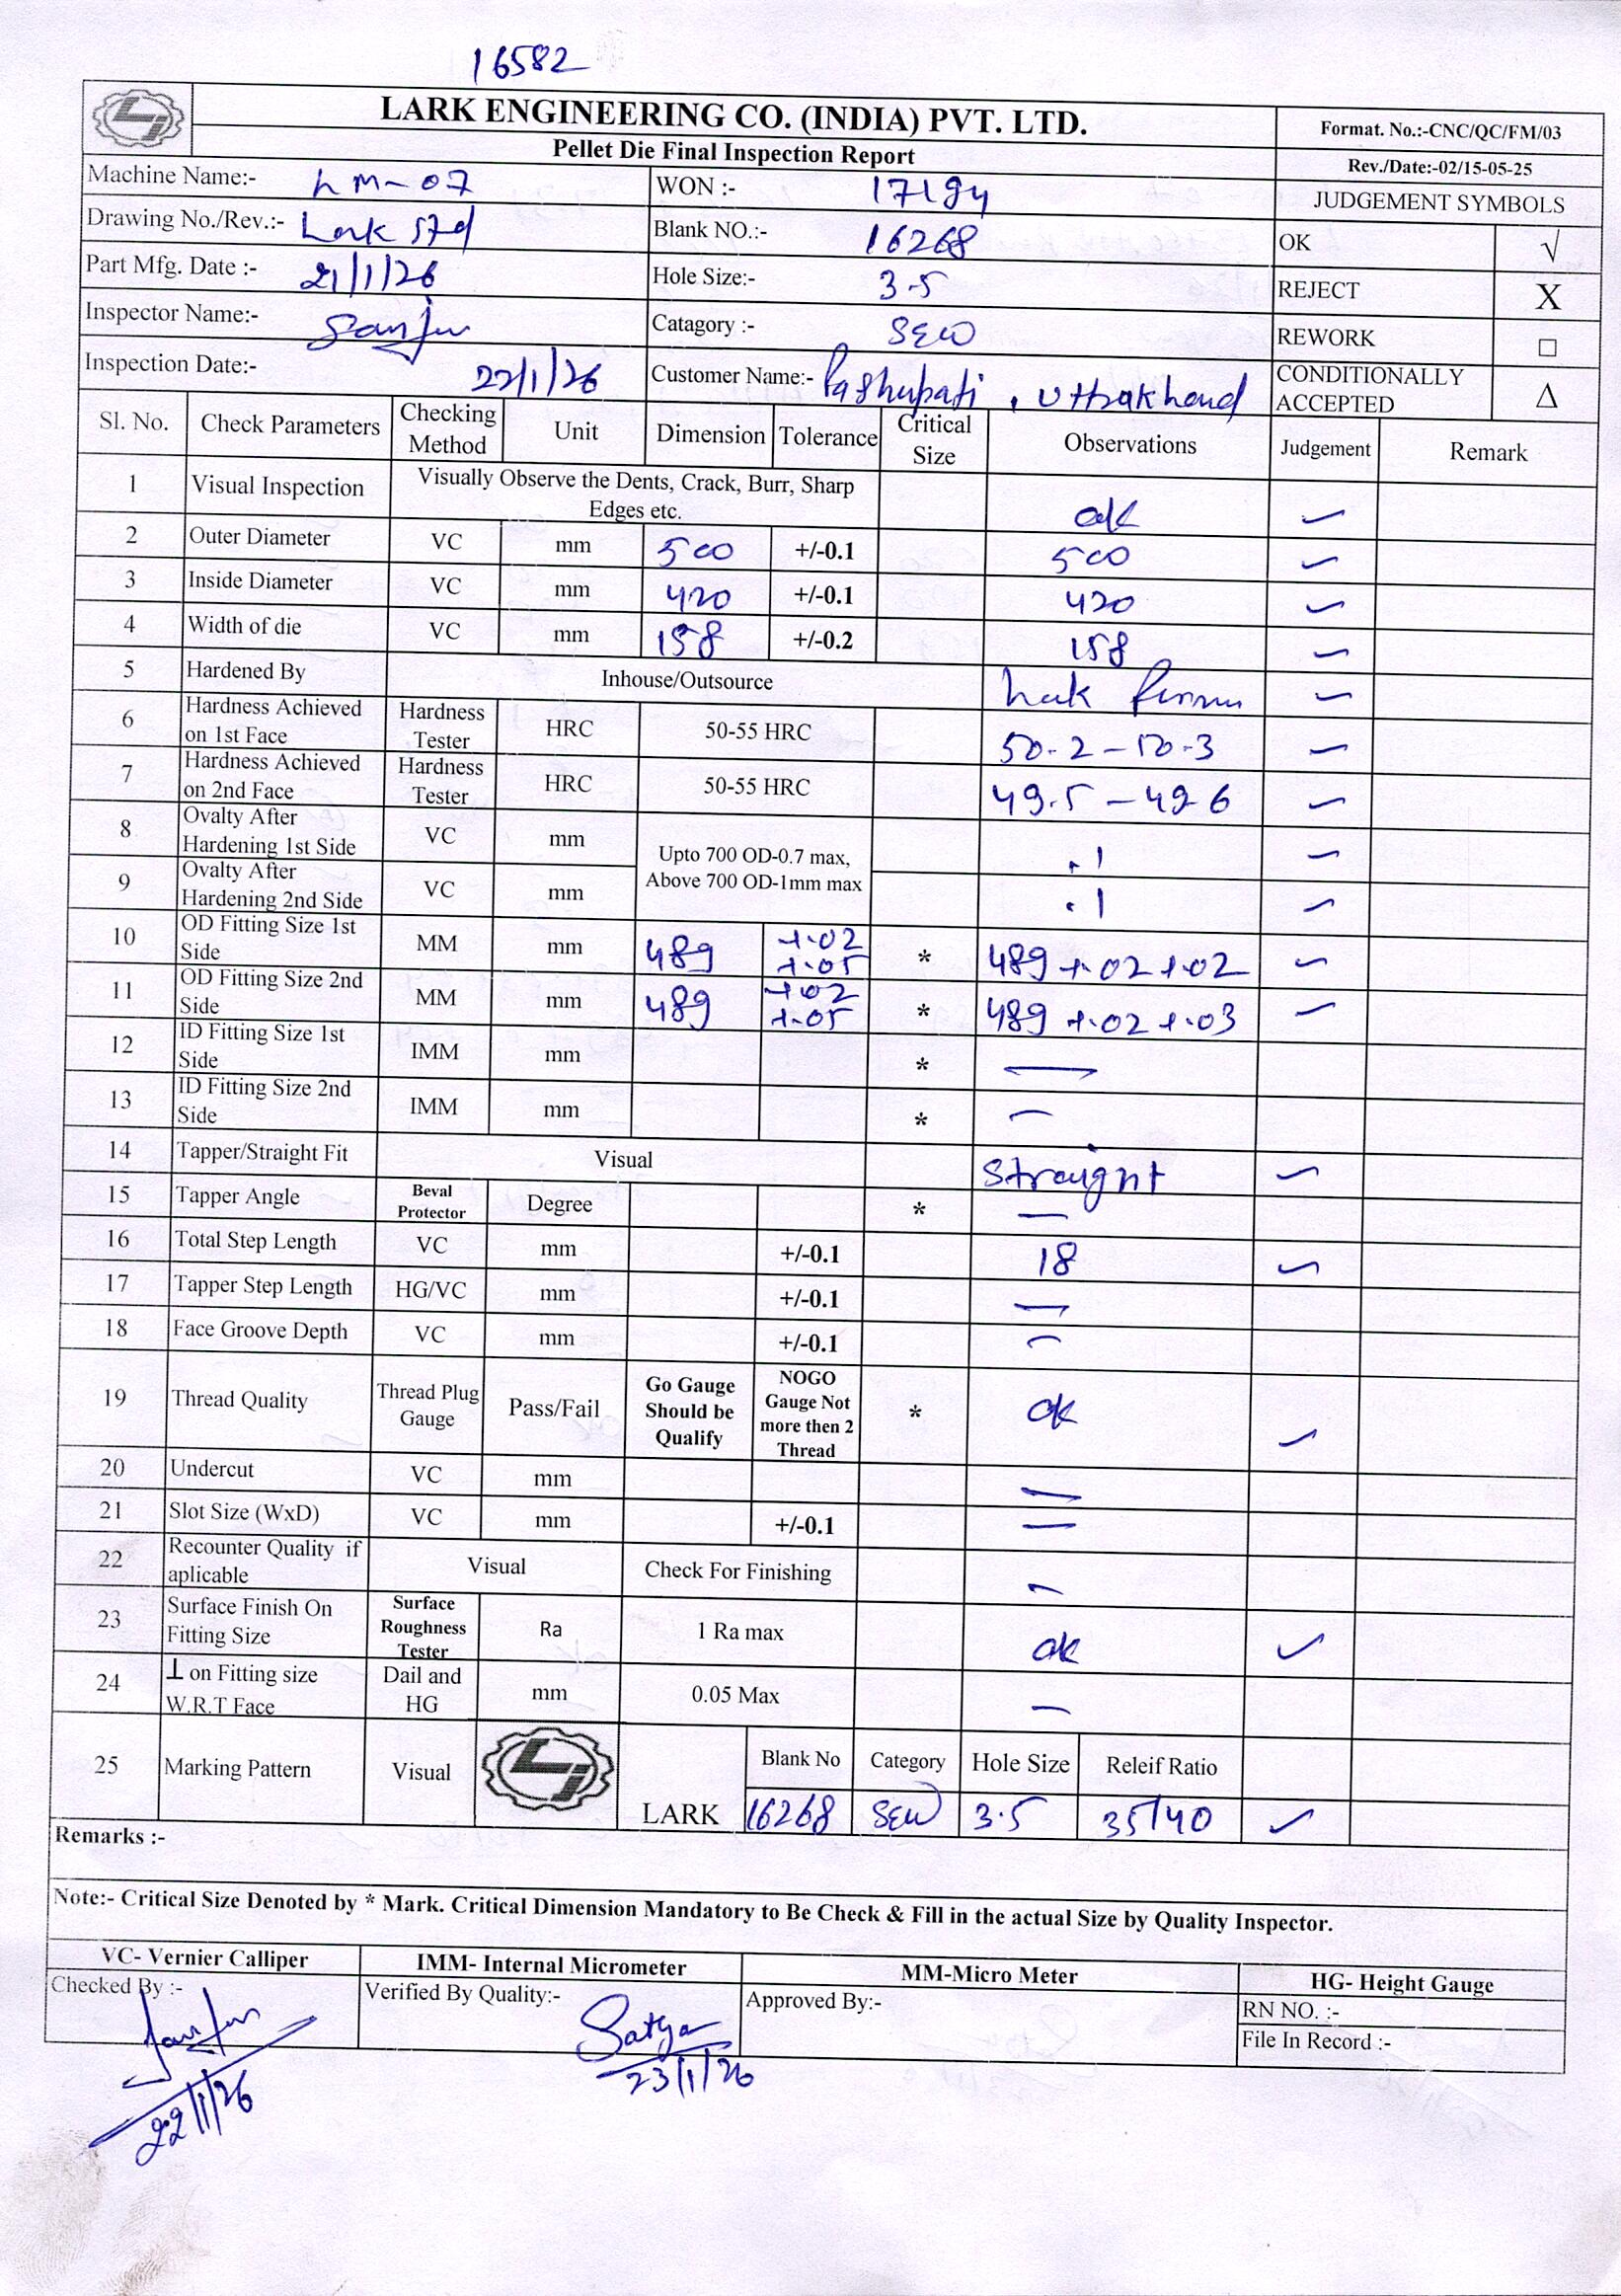 16582
LARK ENGINEERING CO. (INDIA) PVT. LTD.
Pellet Die Final Inspection Report
Format. No.:-CNC/QC/FM/03
Rev./Date:-02/15-05-25
Machine Name:- LM-07
WON :- 17194
JUDGEMENT SYMBOLS
Drawing No./Rev.:- Lark Std
Blank NO.:- 16268
OK √
Part Mfg. Date :- 21/1/26
Hole Size:- 3.5
REJECT X
Inspector Name:- Sanju
Catagory :- SEW
REWORK □
Inspection Date:- 22/1/26
Customer Name:- Pashupati, Uttrakhand
CONDITIONALLY ACCEPTED Δ
Sl. No. Check Parameters Checking Method Unit Dimension Tolerance Critical Size Observations Judgement Remark
1 Visual Inspection Visually Observe the Dents, Crack, Burr, Sharp Edges etc. ok ✓
2 Outer Diameter VC mm 500 +/-0.1 500 ✓
3 Inside Diameter VC mm 420 +/-0.1 420 ✓
4 Width of die VC mm 158 +/-0.2 158 ✓
5 Hardened By Inhouse/Outsource ✓
6 Hardness Achieved on 1st Face Hardness Tester HRC 50-55 HRC 50.2 - 50.3 ✓
7 Hardness Achieved on 2nd Face Hardness Tester HRC 50-55 HRC 49.5 - 49.6 ✓
8 Ovalty After Hardening 1st Side VC mm Upto 700 OD-0.7 max, Above 700 OD-1mm max .1 ✓
9 Ovalty After Hardening 2nd Side VC mm .1 ✓
10 OD Fitting Size 1st Side MM mm 489 +.02 +.05 * 489 +.02 +.02 ✓
11 OD Fitting Size 2nd Side MM mm 489 +.02 +.05 * 489 +.02 +.03 ✓
12 ID Fitting Size 1st Side IMM mm * —
13 ID Fitting Size 2nd Side IMM mm * —
14 Tapper/Straight Fit Visual Straight ✓
15 Tapper Angle Beval Protector Degree * —
16 Total Step Length VC mm +/-0.1 18 ✓
17 Tapper Step Length HG/VC mm +/-0.1 —
18 Face Groove Depth VC mm +/-0.1 —
19 Thread Quality Thread Plug Gauge Pass/Fail Go Gauge Should be Qualify NOGO Gauge Not more then 2 Thread * ok ✓
20 Undercut VC mm —
21 Slot Size (WxD) VC mm +/-0.1 —
22 Recounter Quality if aplicable Visual Check For Finishing —
23 Surface Finish On Fitting Size Surface Roughness Tester Ra 1 Ra max ok ✓
24 ⊥ on Fitting size W.R.T Face Dail and HG mm 0.05 Max —
25 Marking Pattern Visual LARK Blank No Category Hole Size Releif Ratio
16268 SEW 3.5 35/40 ✓
Remarks :-
Note:- Critical Size Denoted by * Mark. Critical Dimension Mandatory to Be Check & Fill in the actual Size by Quality Inspector.
VC- Vernier Calliper IMM- Internal Micrometer MM-Micro Meter HG- Height Gauge
Checked By :- Sanju 22/1/26
Verified By Quality:- Satya 23/1/26
Approved By:-
RN NO. :-
File In Record :-